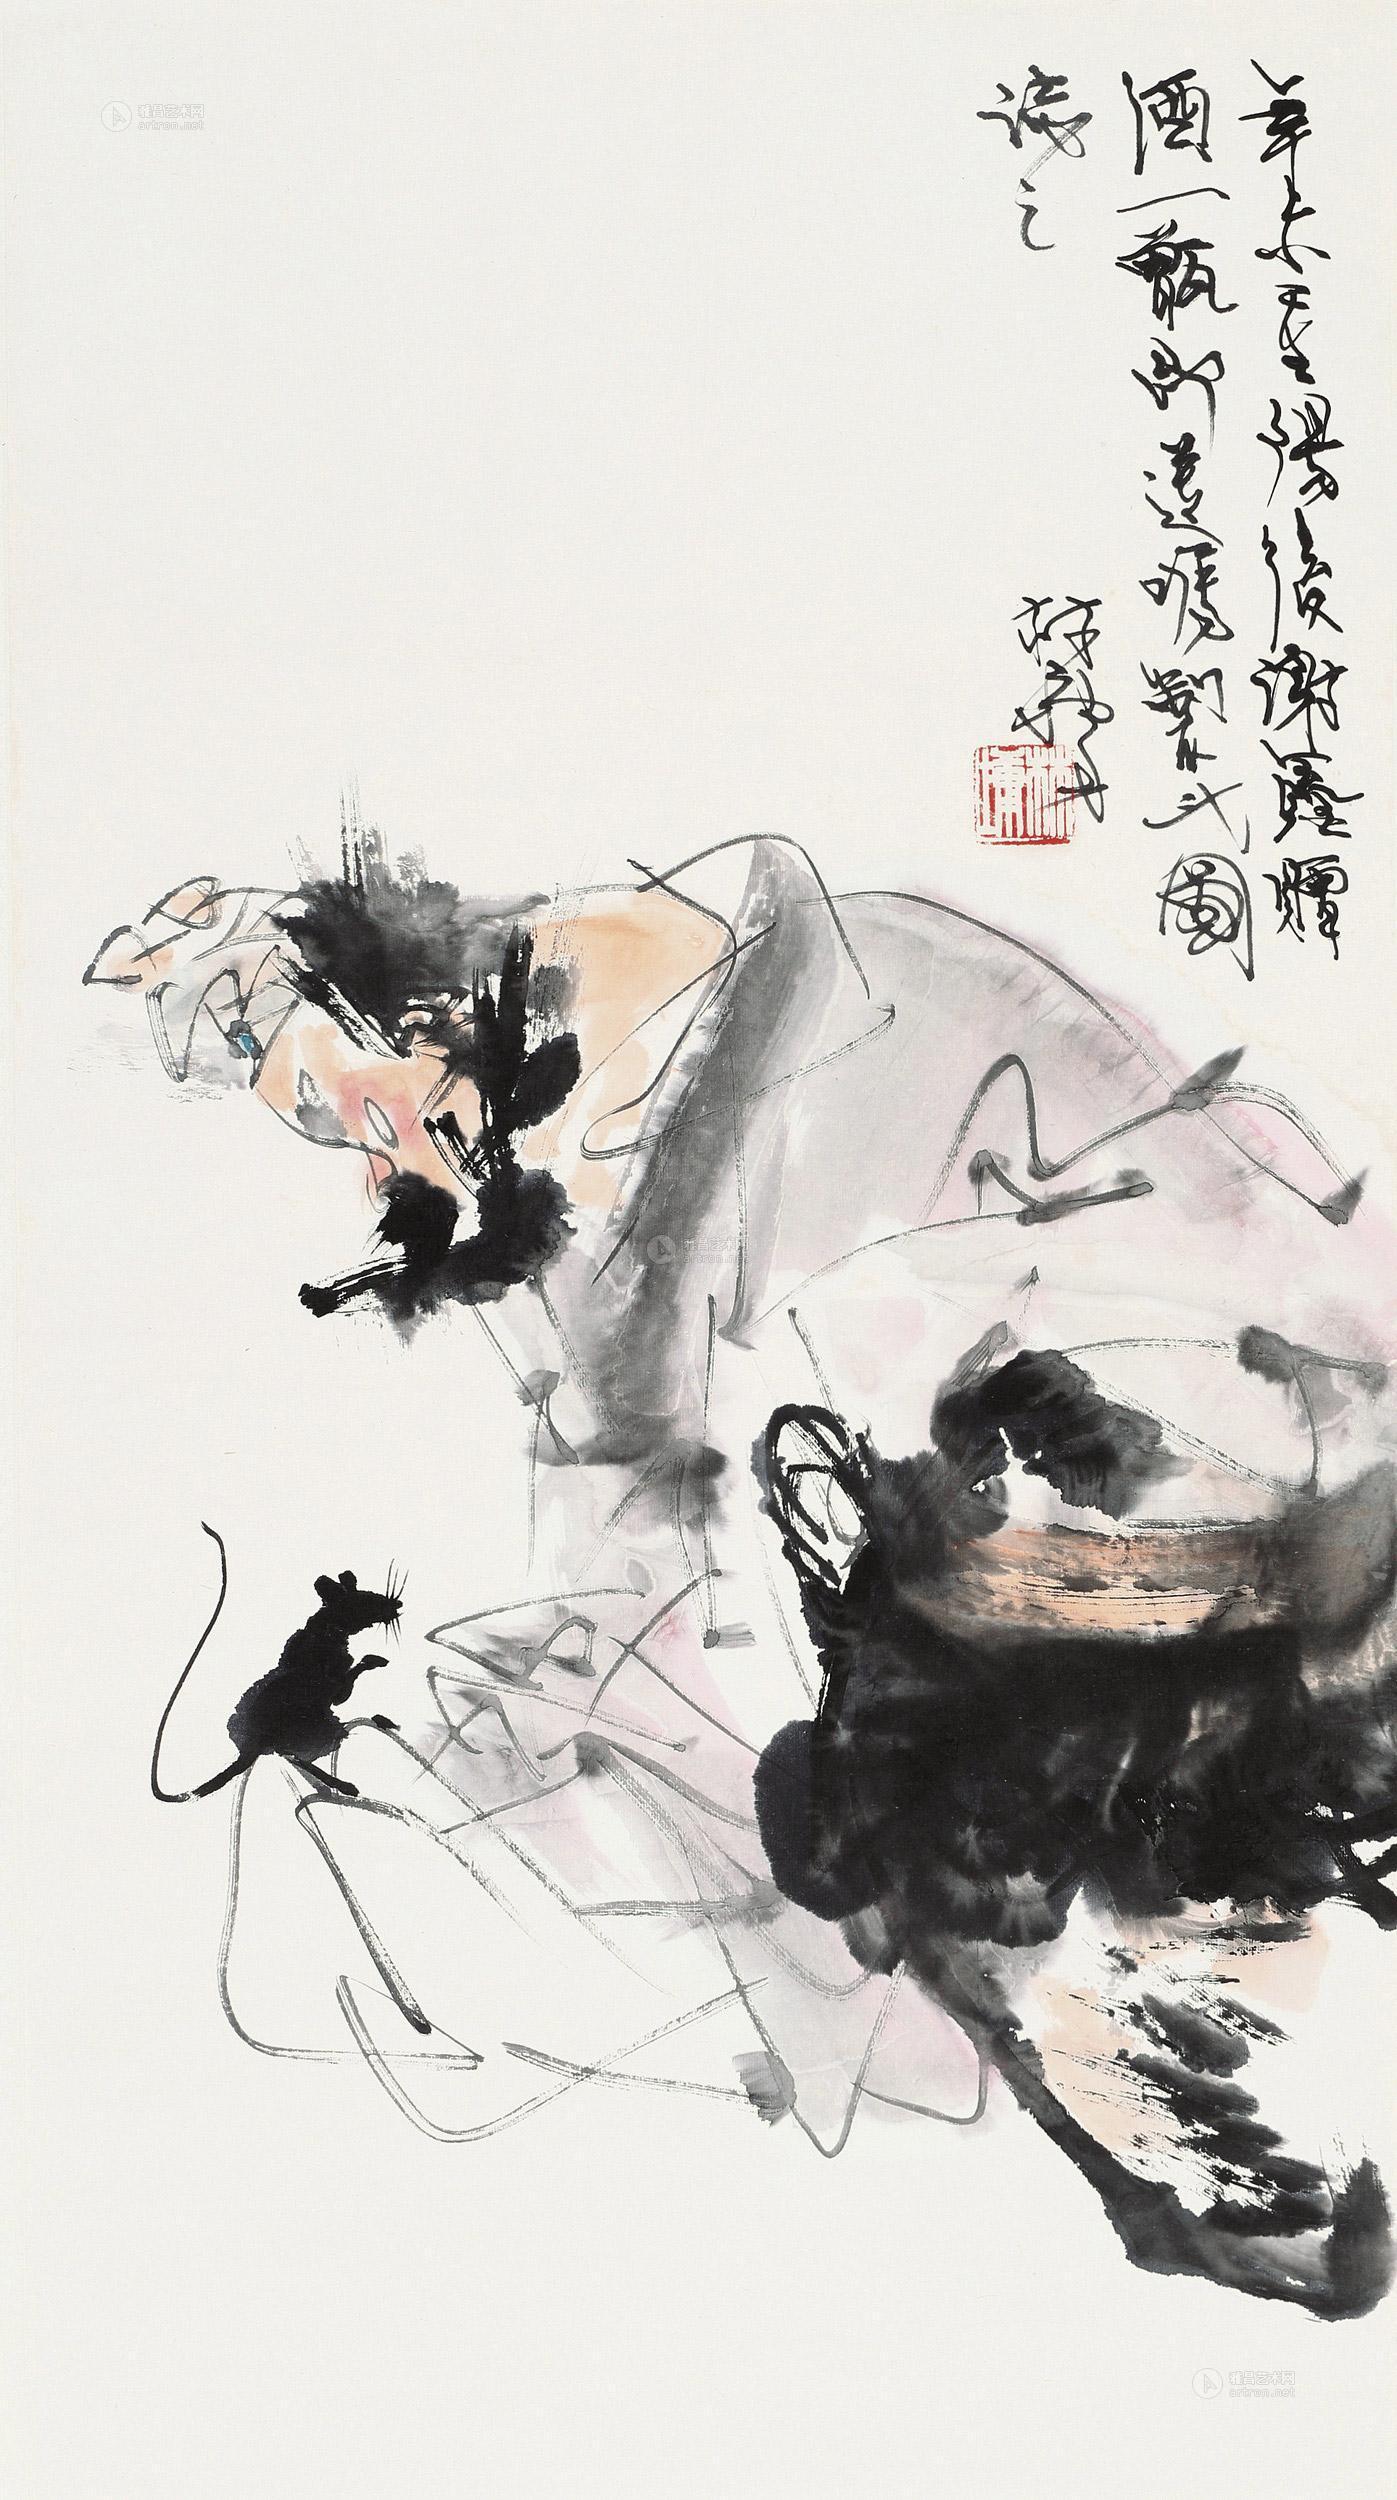 辛未重陽後謝贈
酒一甑即遵囑製此圖
誌之
林墉
林墉
雅昌艺术网
artron.net
雅昌艺术网
artron.net
雅昌艺术网
artron.net